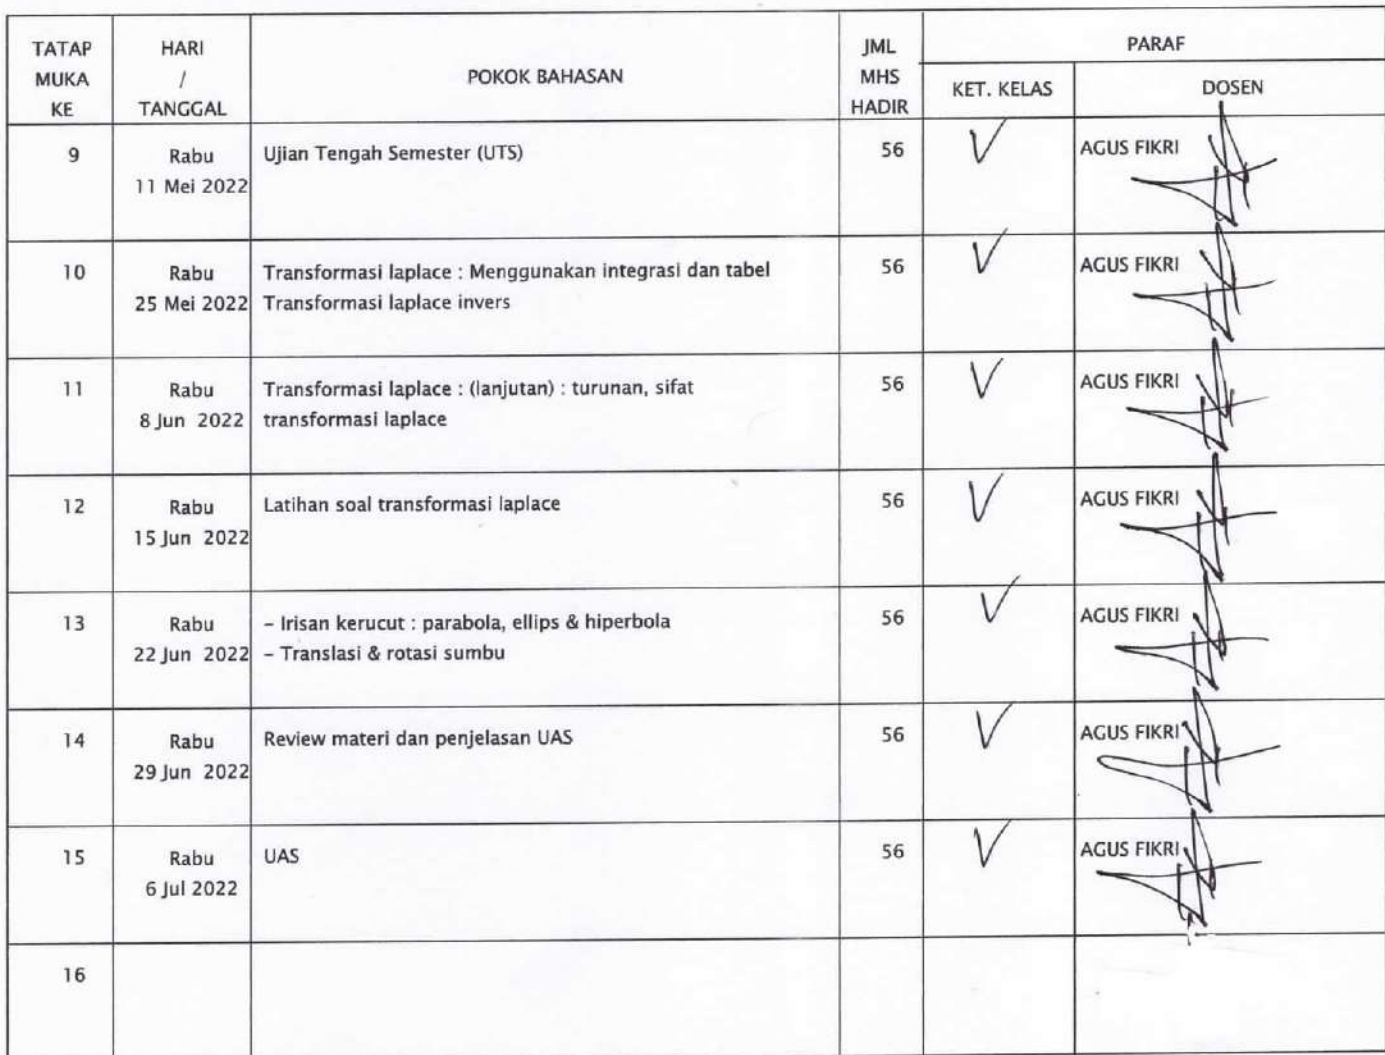 TATAP MUKA KE
HARI / TANGGAL
POKOK BAHASAN
JML MHS HADIR
PARAF
KET. KELAS
DOSEN
9
Rabu
11 Mei 2022
Ujian Tengah Semester (UTS)
56
AGUS FIKRI
10
Rabu
25 Mei 2022
Transformasi laplace : Menggunakan integrasi dan tabel
Transformasi laplace invers
56
AGUS FIKRI
11
Rabu
8 Jun 2022
Transformasi laplace : (lanjutan) : turunan, sifat
transformasi laplace
56
AGUS FIKRI
12
Rabu
15 Jun 2022
Latihan soal transformasi laplace
56
AGUS FIKRI
13
Rabu
22 Jun 2022
– Irisan kerucut : parabola, ellips & hiperbola
– Translasi & rotasi sumbu
56
AGUS FIKRI
14
Rabu
29 Jun 2022
Review materi dan penjelasan UAS
56
AGUS FIKRI
15
Rabu
6 Jul 2022
UAS
56
AGUS FIKRI
16